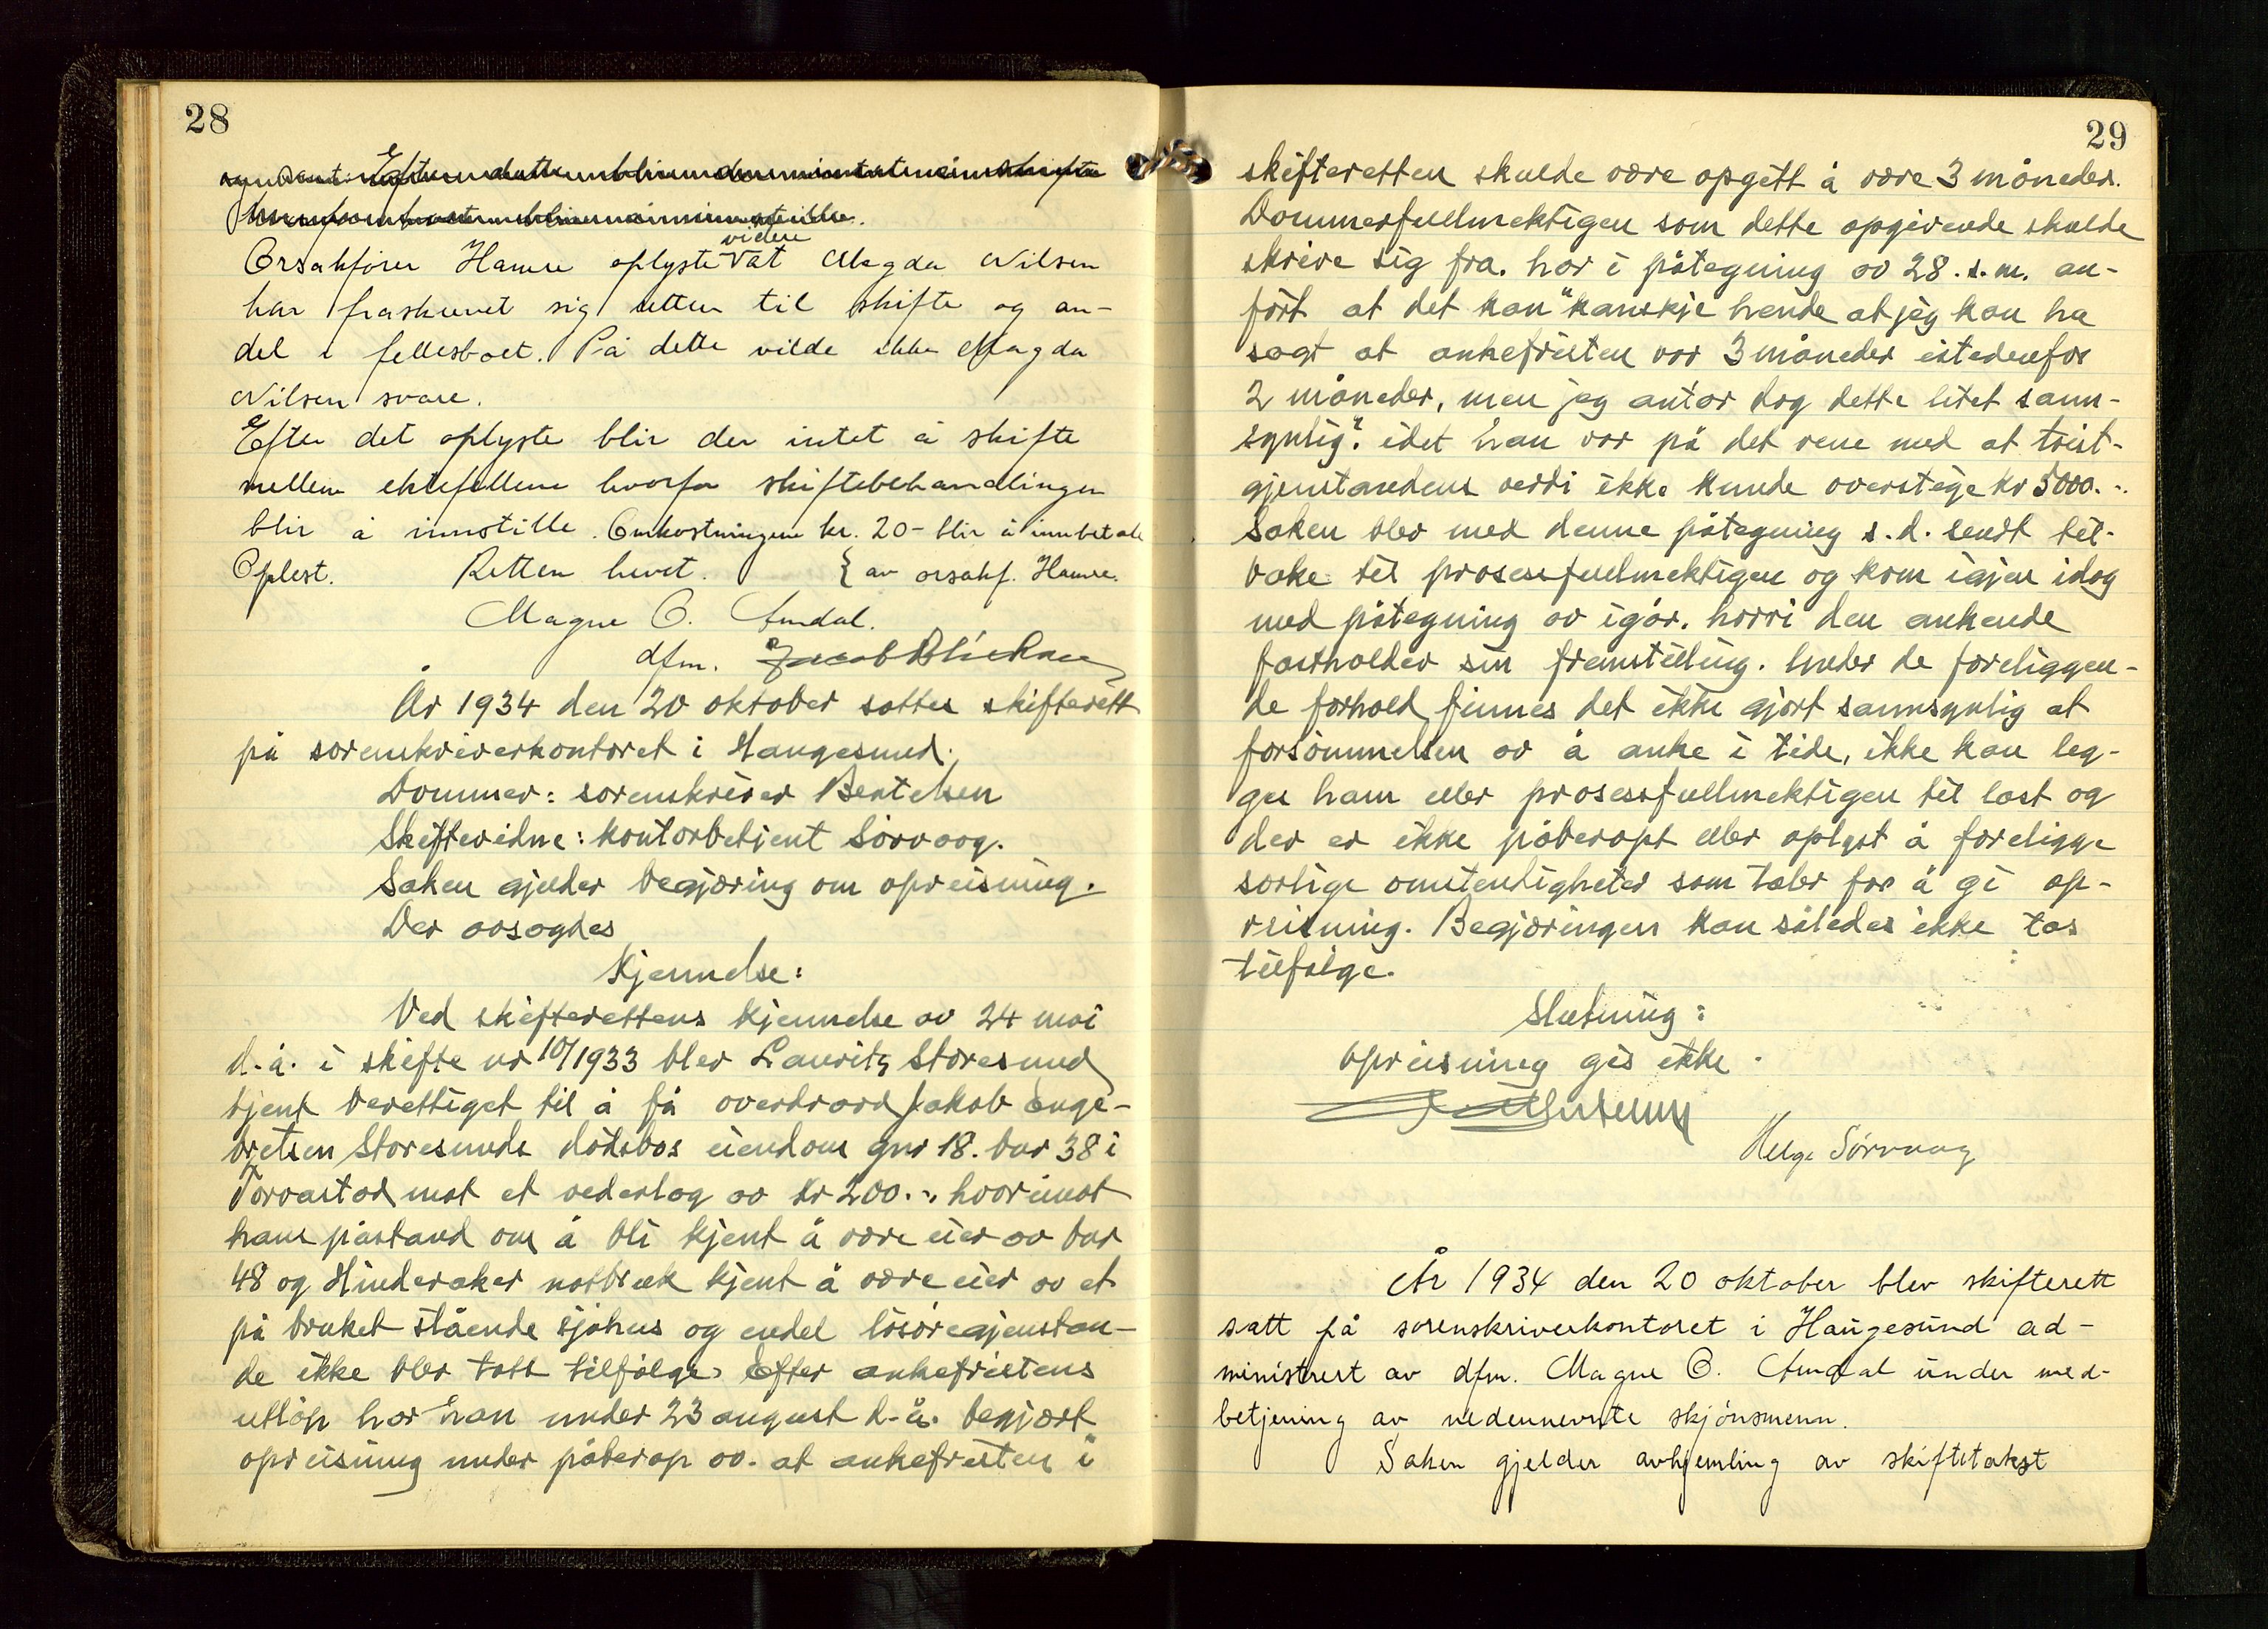 28
Orsakfører Hamre oplyste videre at Magda Nilsen
har fraskrevet sig retten til skifte og an-
del i fellesboet. På dette vilde ikke Magda
Nilsen svare.
Efter det oplyste blir der intet å skifte
mellem ektefellene hvorfor skiftebehandlingen
blir å innstille. Omkostningene kr. 20- blir å innbetale
Oplest. Retten hevet. } av orsakf. Hamre.
Magne O. Amdal.
dfm.
År 1934 den 20 oktober sattes skifterett
på sorenskriverkontoret i Haugesund.
Dommer: sorenskriver Bentelsen
Skiftevidne: kontorbetjent Sørvaag.
Saken gjelder begjæring om opreisning.
Der avsagdes
Kjennelse:
Ved skifterettens kjennelse av 24 mai
d.å. i skifte nr 10/1933 blev Lauritz Storesund
kjent berettiget til å få overdradd Jakob Enge-
bretsen Storesunds dødsbos eiendom gnr 18. bnr 38 i
Torvastad mot et vederlag av kr 200.-, hvorimot
hans påstand om å bli kjent å være eier av bnr
48 og Hinderaker notbruk kjent å være eier av et
på bruket stående sjøhus og endel løsøregjenstan-
de ikke blev tatt tilfølge. Efter ankefristens
utløp har han under 23 august d.å. begjært
opreisning under påberop av. at ankefristen i
29
skifteretten skulde være opgitt å være 3 måneder.
Dommerfullmektigen som dette opgivende skulde
skrive sig fra, har i påtegning av 28. s.m. an-
ført at det kan "kanskje hende at jeg kan ha
sagt at ankefristen var 3 måneder istedenfor
2 måneder, men jeg antar dog dette litet sann-
synlig". idet han var på det rene med at tvist-
gjenstandens verdi ikke kunde overstige kr 5000.-.
Saken blev med denne påtegning s.d. sendt til-
bake til prosessfullmektigen og kom igjen idag
med påtegning av igår, hvori den ankende
fastholder sin fremstilling. Under de foreliggen-
de forhold finnes det ikke gjort sannsynlig at
forsømmelsen av å anke i tide, ikke kan leg-
ges ham eller prosessfullmektigen til last og
der er ikke påberopt eller oplyst å foreligge
særlige omstendigheter som taler for å gi op-
reisning. Begjæringen kan således ikke tas
tilfølge.
Slutning:
Opreisning gis ikke.
Helge Sørvaag
År 1934 den 20 oktober blev skifterett
satt på sorenskriverkontoret i Haugesund ad-
ministrert av dfm. Magne O. Amdal under med-
betjening av nedennevnte skjønsmenn.
Saken gjelder avhjemling av skiftetakst